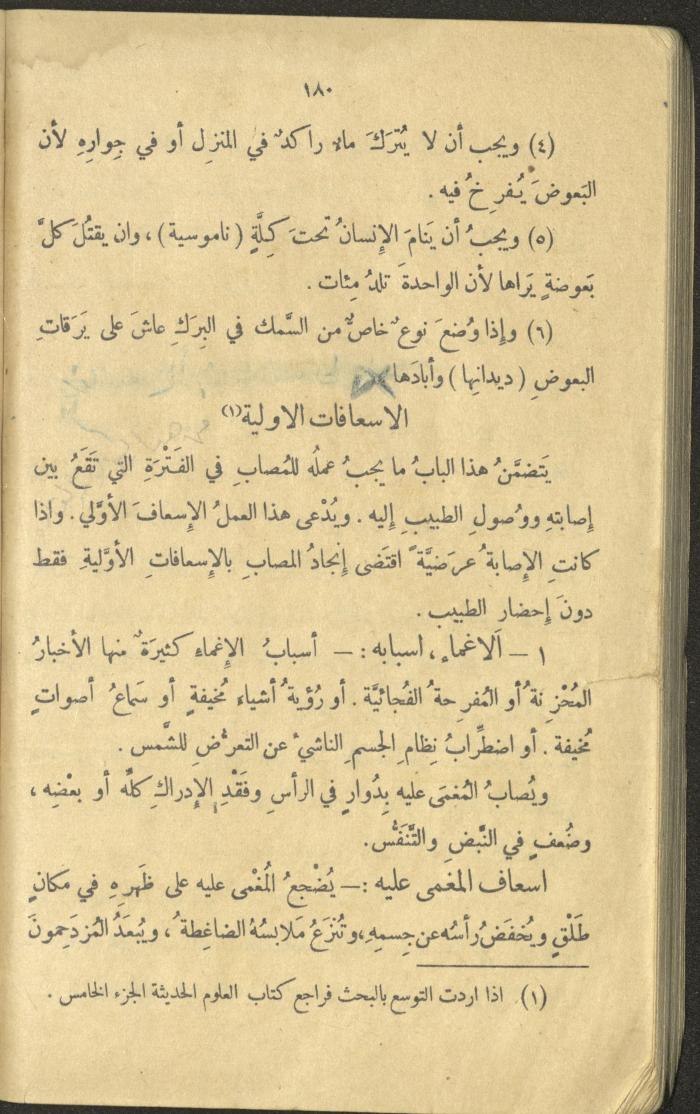 ١٨٠
(٤) ويجب أن لا يُتْرَكَ ماءٌ راكدٌ في المنزِل أو في جِوارِهِ لأن
البَعوضَ يُفرِخُ فيه .
(٥) ويجبُ أن يَنامَ الإِنسانُ تحتَ كِلَّةٍ (ناموسية) ، وان يقتُلَ كلَّ
بَعوضةٍ يَراها لأن الواحدةَ تلدُ مِئات .
(٦) وإِذا وُضعَ نوعٌ خاصٌّ من السَّمك في البِرَكِ عاشَ على يَرَقاتِ
البعوضِ (ديدانِها) وأبادَها
الاسعافات الاولية (١)
يَتضمَّنُ هذا البابُ ما يجبُ عملُه للمُصابِ في الفَتْرَةِ التي تَقَعُ بين
إِصابتهِ ووُصولِ الطبيبِ إِليه . ويُدْعى هذا العملُ الإِسعافَ الأوَّلي . واذا
كانتِ الإِصابةُ عرَضيَّةً اقتَضى إِنجادُ المصابِ بالإِسعافاتِ الأوَّليةِ فقط
دونَ إِحضار الطبيب .
١ — اَلاغماء ، اسبابه : — أسبابُ الإِغماء كثيرَةٌ منها الأخبارُ
المُحْزِنةُ أو المُفرِحةُ الفُجائيَّة . أو رُؤيةُ أشياء مُخيفةٍ أو سَماعُ أصواتٍ
مُخيفة . أو اضطِّرابُ نِظام الجسمِ الناشيءُ عن التعرُّضِ للشَّمس .
ويُصابُ المُغمَى عليه بِدُوارٍ في الرأسِ وفَقْدِ الإِدراكِ كلِّه أو بعْضِه ،
وضُعفٍ في النَّبضِ والتَّنَفُّس .
اسعاف المغمى عليه : — يُضْجعُ المُغْمى عليه على ظَهرِهِ في مكانٍ
طَلْقٍ ويُخفَضُ رأسُه عن جِسمِهِ ، وتُنزَعُ مَلابسُهُ الضاغِطةُ ، ويُبعَدُ المُزدَحِمونَ
(١) اذا اردت التوسع بالبحث فراجع كتاب العلوم الحديثة الجزء الخامس .